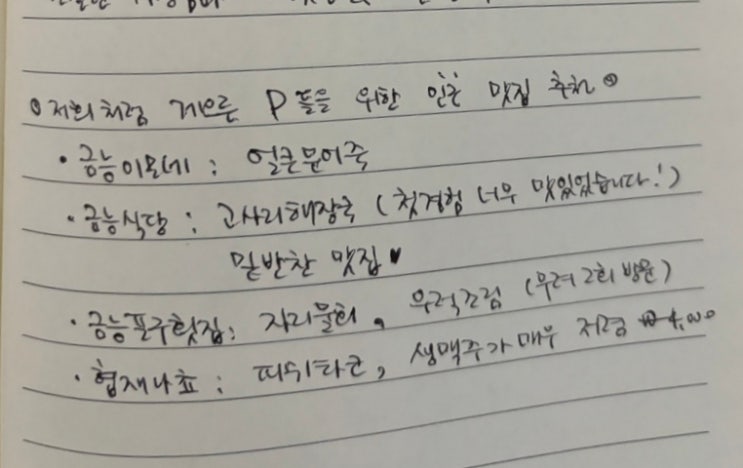 ◎ 저희처럼 게으른 P들을 위한 인근 맛집 추천 ◎
· 금능이모네 : 얼큰문어죽
· 금능식당 : 고사리해장국 (첫경험 너무 맛있었습니다!)
밑반찬 맛집♥
· 금능포구횟집 : 자리물회, 우럭조림 (무려 2회 방문)
· 협재나쵸 : 띠위타코, 생맥주가 매우 저렴 4,000